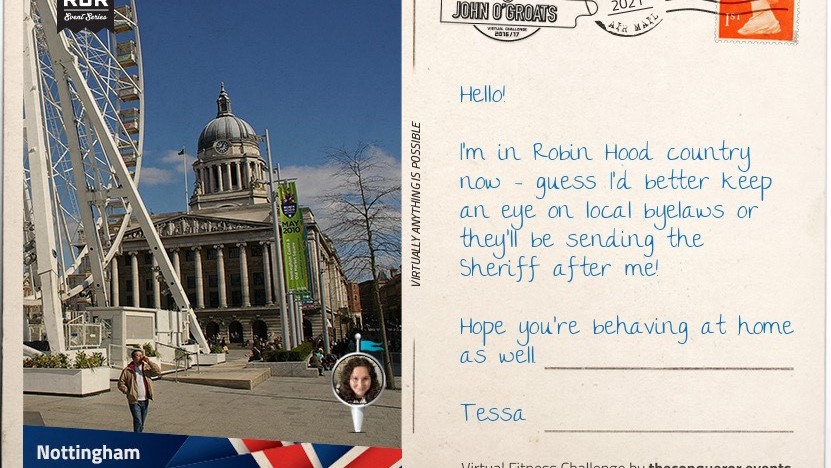 RUN
Event Series
MAY
2010
Nottingham
VIRTUALLY ANYTHING IS POSSIBLE
JOHN O'GROATS
VIRTUAL CHALLENGE
2016/17
2021
AIR MAIL
1ST
Hello!
I'm in Robin Hood country
now - guess I'd better keep
an eye on local byelaws or
they'll be sending the
Sheriff after me!
Hope you're behaving at home
as well
Tessa
Virtual Fitness Challenge by theconqueror.events